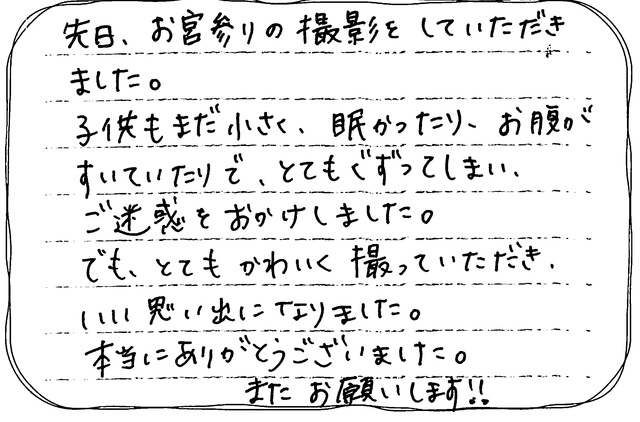 先日、お宮参りの撮影をしていただき
ました。
子供もまだ小さく、眠かったり、お腹が
すいていたりで、とてもぐずってしまい、
ご迷惑をおかけしました。
でも、とてもかわいく撮っていただき、
いい思い出になりました。
本当にありがとうございました。
またお願いします!!